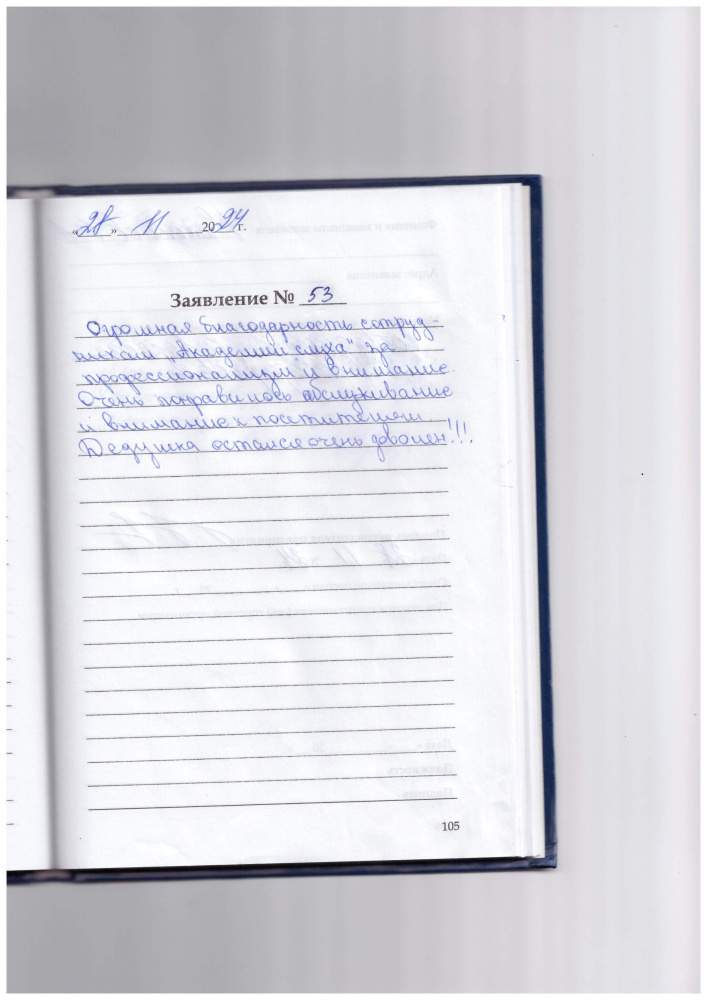 «28» 11 2024 г.
Заявление № 53
Огромная благодарность сотруд-
никам „Академии слуха" за
профессионализм и внимание.
Очень понравилось обслуживание
и внимание к посетителям
Дедушка остался очень доволен!!!
105